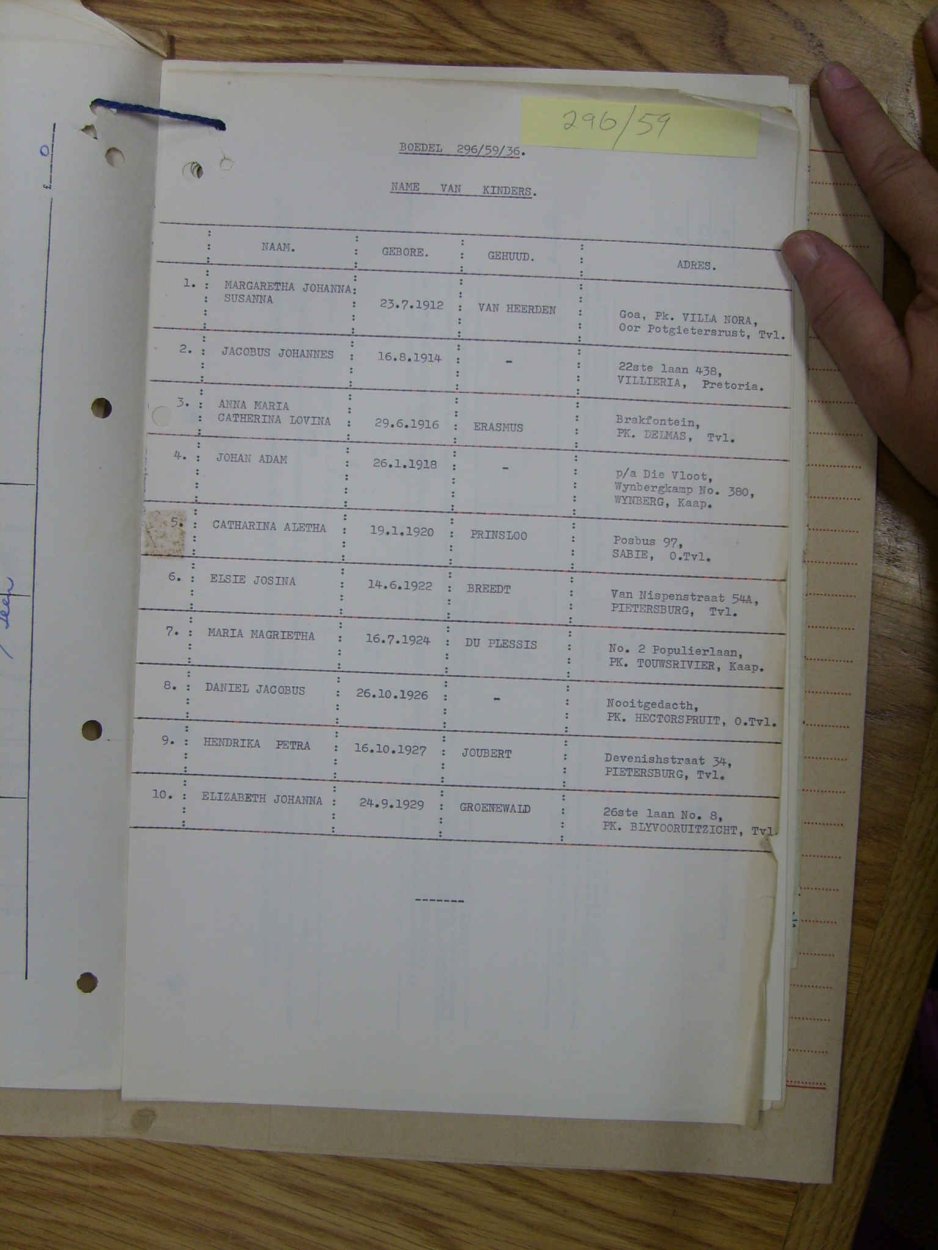 296/59
BOEDEL 296/59/36.
NAME VAN KINDERS.
NAAM. GEBORE. GEHUUD. ADRES.
1. MARGARETHA JOHANNA
SUSANNA 23.7.1912 VAN HEERDEN Goa, Pk. VILLA NORA,
Oor Potgietersrust, Tvl.
2. JACOBUS JOHANNES 16.8.1914 - 22ste laan 438,
VILLIERIA, Pretoria.
3. ANNA MARIA
CATHERINA LOVINA 29.6.1916 ERASMUS Brakfontein,
PK. DELMAS, Tvl.
4. JOHAN ADAM 26.1.1918 - p/a Die Vloot,
Wynbergkamp No. 380,
WYNBERG, Kaap.
5. CATHARINA ALETHA 19.1.1920 PRINSLOO Posbus 97,
SABIE, O.Tvl.
6. ELSIE JOSINA 14.6.1922 BREEDT Van Nispenstraat 54A,
PIETERSBURG, Tvl.
7. MARIA MAGRIETHA 16.7.1924 DU PLESSIS No. 2 Populierlaan,
PK. TOUWSRIVIER, Kaap.
8. DANIEL JACOBUS 26.10.1926 - Nooitgedacth,
PK. HECTORSPRUIT, O.Tvl.
9. HENDRIKA PETRA 16.10.1927 JOUBERT Devenishstraat 34,
PIETERSBURG, Tvl.
10. ELIZABETH JOHANNA 24.9.1929 GROENEWALD 26ste laan No. 8,
PK. BLYVOORUITZICHT, Tvl.